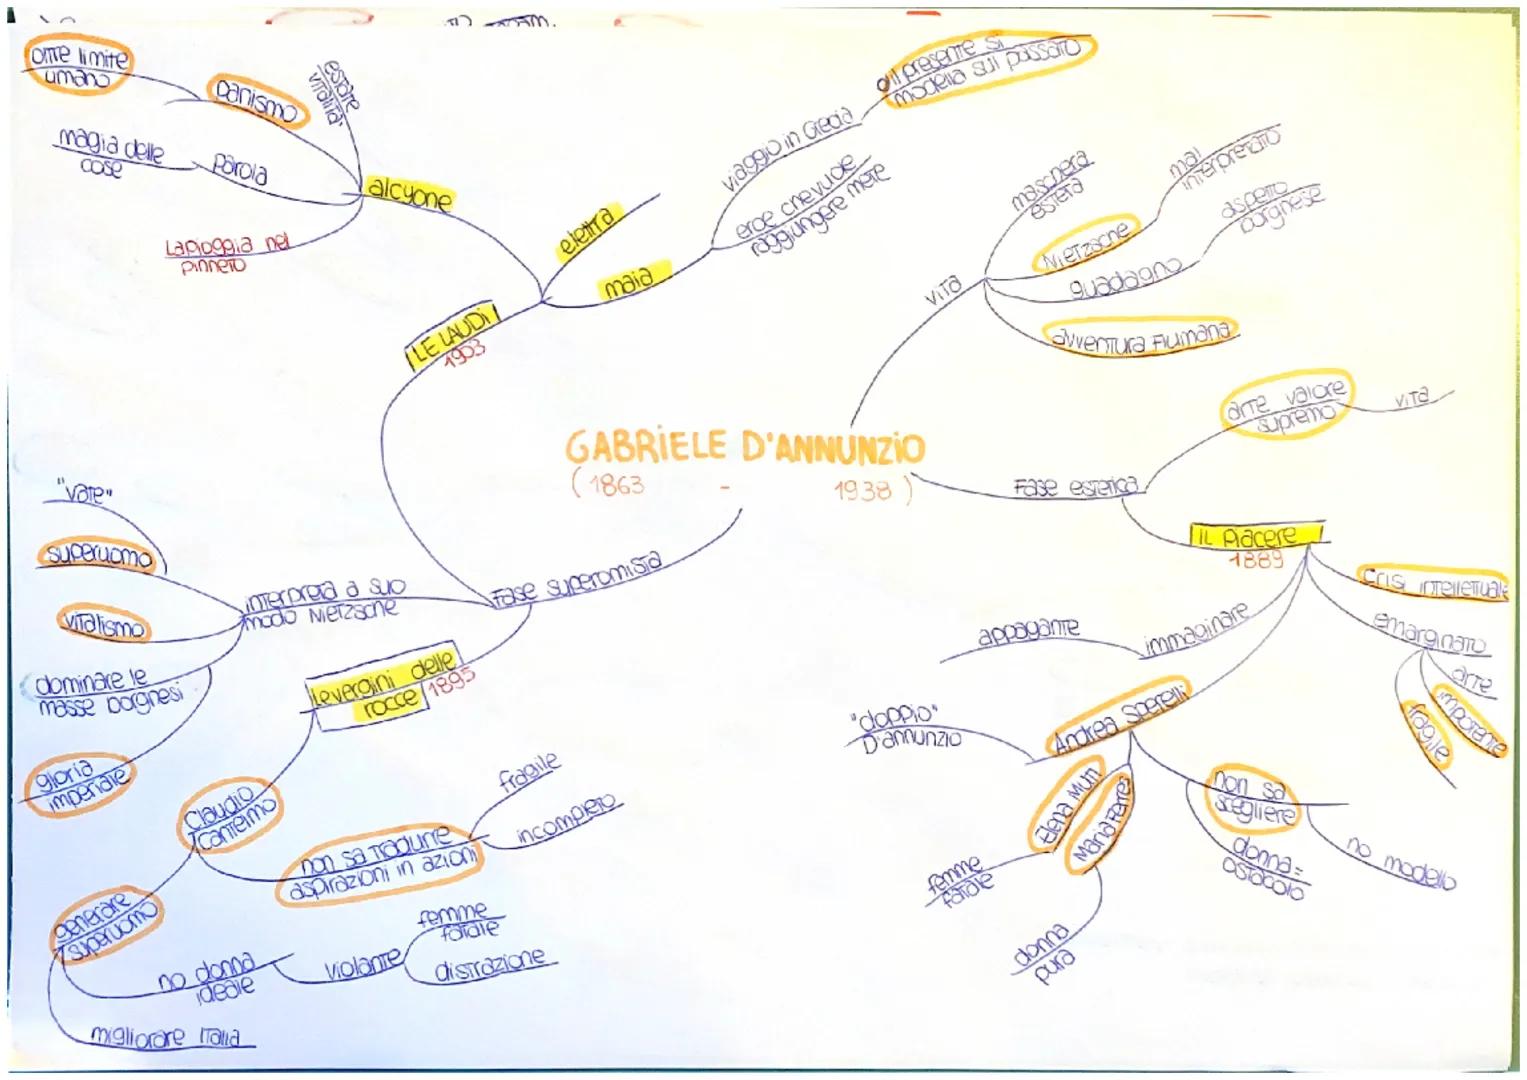 GABRIELE D'ANNUNZIO
(1863 - 1938)
vita
maschera
esteta
Nietzsche
mal
interpretato
guadagno
aspetto
borghese
avventura Fiumana
Fase estetica
arte valore
supremo
vita
IL PIACERE
1889
crisi intellettuale
emarginato
arte
impotente
fragile
immaginare
appagante
Andrea Sperelli
"doppio"
D'annunzio
Elena Muti
femme
fatale
Maria Ferres
donna
pura
non sa
scegliere
donna =
ostacolo
no modello
Fase superomista
LE LAUDI
1903
alcyone
estate
vitalità
panismo
oltre limite
umano
parola
magia delle
cose
La pioggia nel
pinneto
elettra
maia
viaggio in Grecia
il presente si
modella sul passato
eroe che vuole
raggiungere mete
interpreta a suo
modo Nietzsche
"vate"
superuomo
vitalismo
dominare le
masse borghesi
gloria
imperiale
Le vergini delle
rocce 1895
Claudio
Cantelmo
non sa tradurre
aspirazioni in azioni
fragile
incompleto
generare
superuomo
no donna
ideale
violante
femme
fatale
distrazione
migliorare Italia